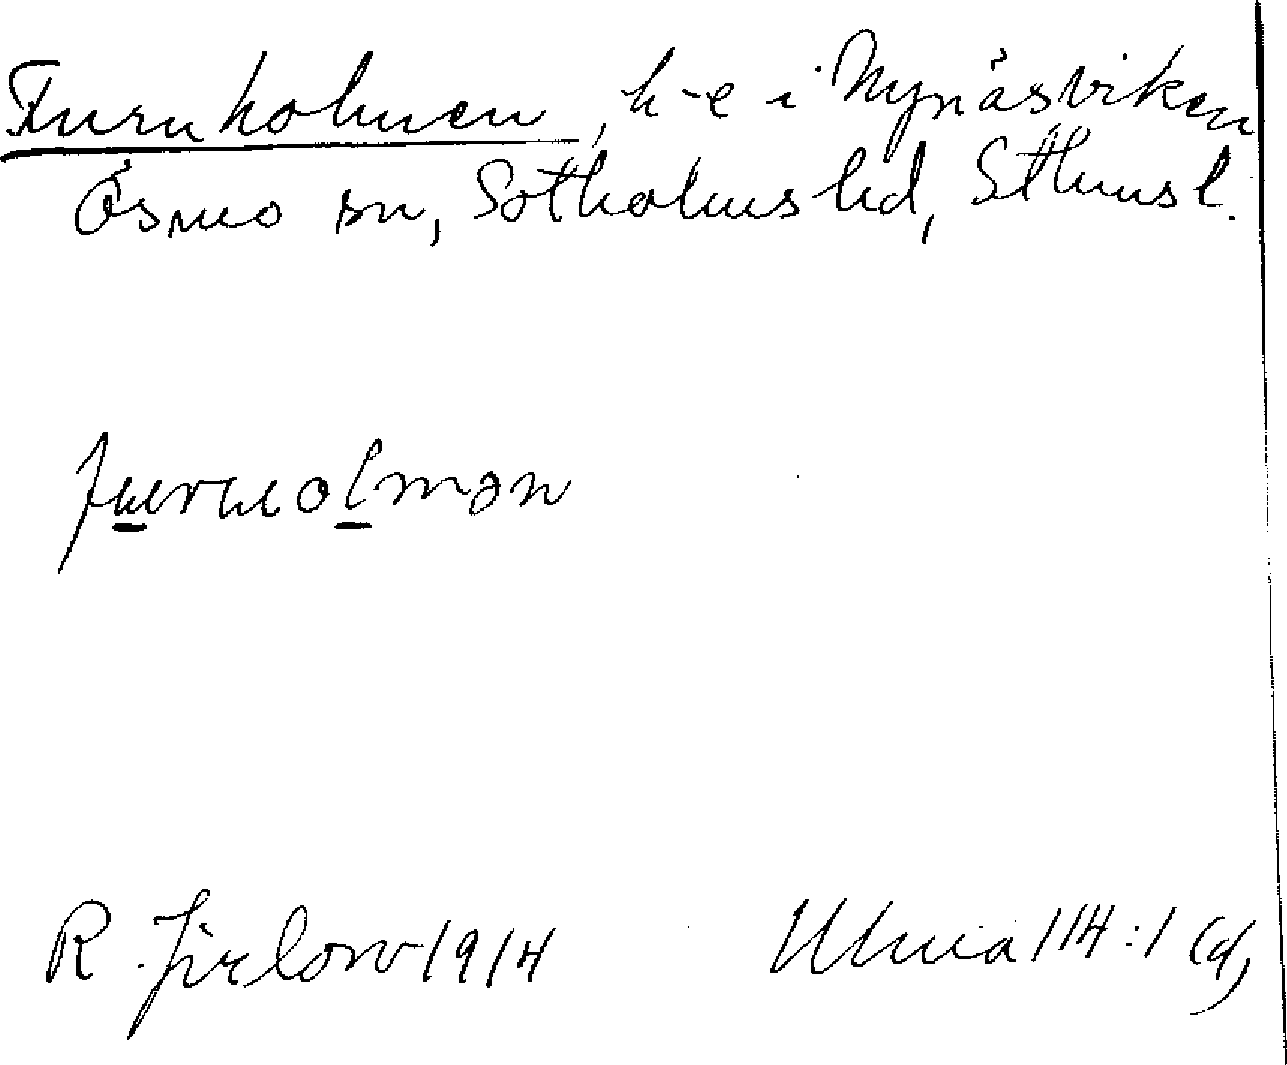 Furuholmen, h-e i Nynäsviken
Ösmo sn, Sotholms hd, Sthmsl.
furuolmən
R. Jirlow 1914